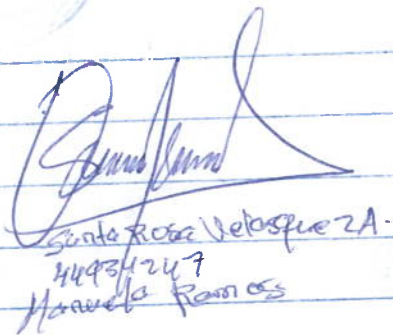 Santa Rosa Velasquez A.
44934247
Manuela Ramos